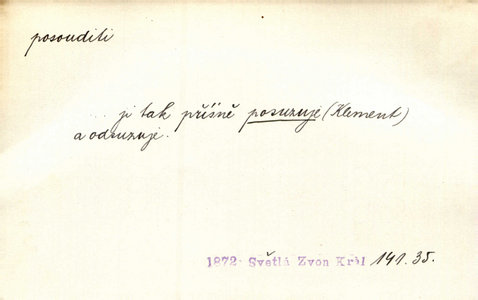 posouditi
... ji tak přísně posuzuje (Klement)
a odsuzuje.
1872 Světlá Zvon Král 141.35.